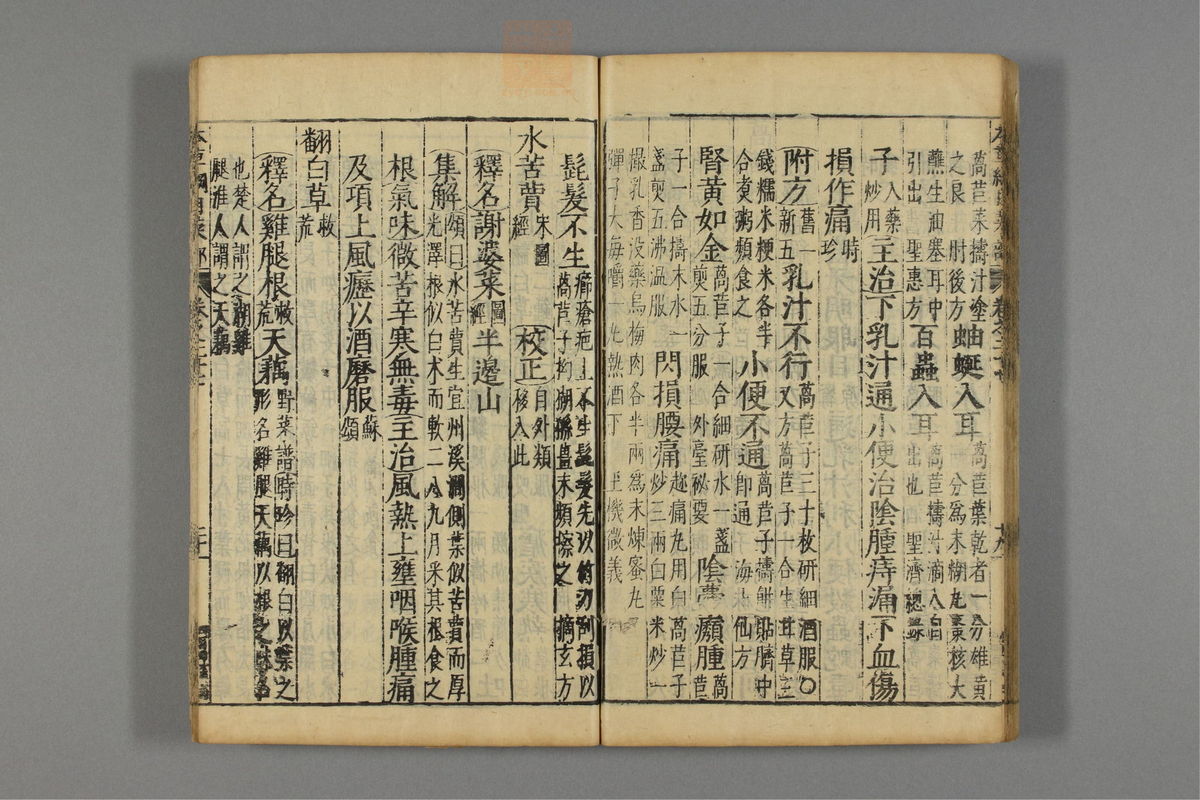 萵苣菜擣汁塗
之良 肘後方
蚰蜒入耳
萵苣葉乾者一分雄黃
一分爲末糊丸棗核大
蘸生油塞耳中
引出 聖惠方
百蟲入耳
萵苣擣汁滴入自
出也 聖濟總錄
子
入藥
炒用
主治下乳汁通小便治陰腫痔漏下血傷
損作痛
時
珍
附方
舊一
新五
乳汁不行
萵苣子三十枚研細酒服〇
又方萵苣子一合生甘草三
錢糯米粳米各半
合煮粥頻食之
小便不通
萵苣子擣餅貼臍中
即通 海上仙方
腎黃如金
萵苣子一合細研水一盞
煎五分服 外臺祕要
陰㿗㿉腫
萵苣
子一合擣末水一
盞煎五沸溫服
閃損腰痛
趁痛丸用白萵苣子
炒三兩白粟米炒一
撮乳香沒藥烏梅肉各半兩爲末煉蜜丸
彈子大每嚼一丸熱酒下 玉機微義
髭髮不生
癤瘡疤上不生髭髮先以竹刀刮損以
萵苣子拘猢猻薑末頻擦之 摘玄方
水苦蕒
宋圖
經
校正
自外類
移入此
釋名謝婆菜
圖
經
半邊山
集解
頌曰水苦蕒生宜州溪澗側葉似苦蕒而厚
光澤根似白朮而軟二八九月采其根食之
根氣味微苦辛寒無毒主治風熱上壅咽喉腫痛
及項上風癧以酒磨服
蘇
頌
翻白草
救
荒
釋名雞腿根
救
荒
天藕
野菜譜時珍曰翻白以葉之
形名雞腿天藕以根之味名
也楚人謂之湖雞
腿淮人謂之天藕